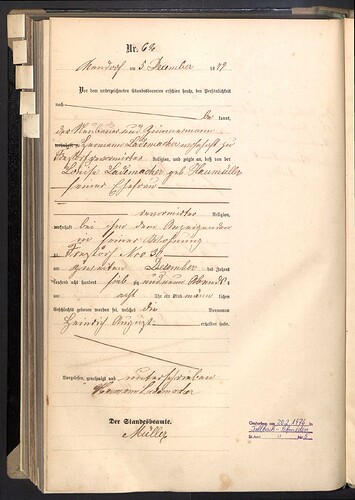 Nr. 62
am 5 December 1879
Vor dem unterzeichneten Standesbeamten erschien heute, der Persönlichkeit
nach
kannt,
der Neubauer und Zimmermann
Hermann Lademacher wohnhaft zu
reformirter Religion, und zeigte an, daß von der
Louise Lademacher geb.
seiner Ehefrau
reformirter Religion,
wohnhaft bei ihm dem Anzeigenden
in seiner Wohnung
zu Nro 39
am zweiten December des Jahres
tausend acht hundert siebzig und neun Abends
um acht Uhr ein Kind männlichen
Geschlechts geboren worden sei, welches die Vornamen
Heinrich August
erhalten habe.
Vorgelesen, genehmigt und unterschrieben
Hermann Lademacher
Der Standesbeamte.
Müller